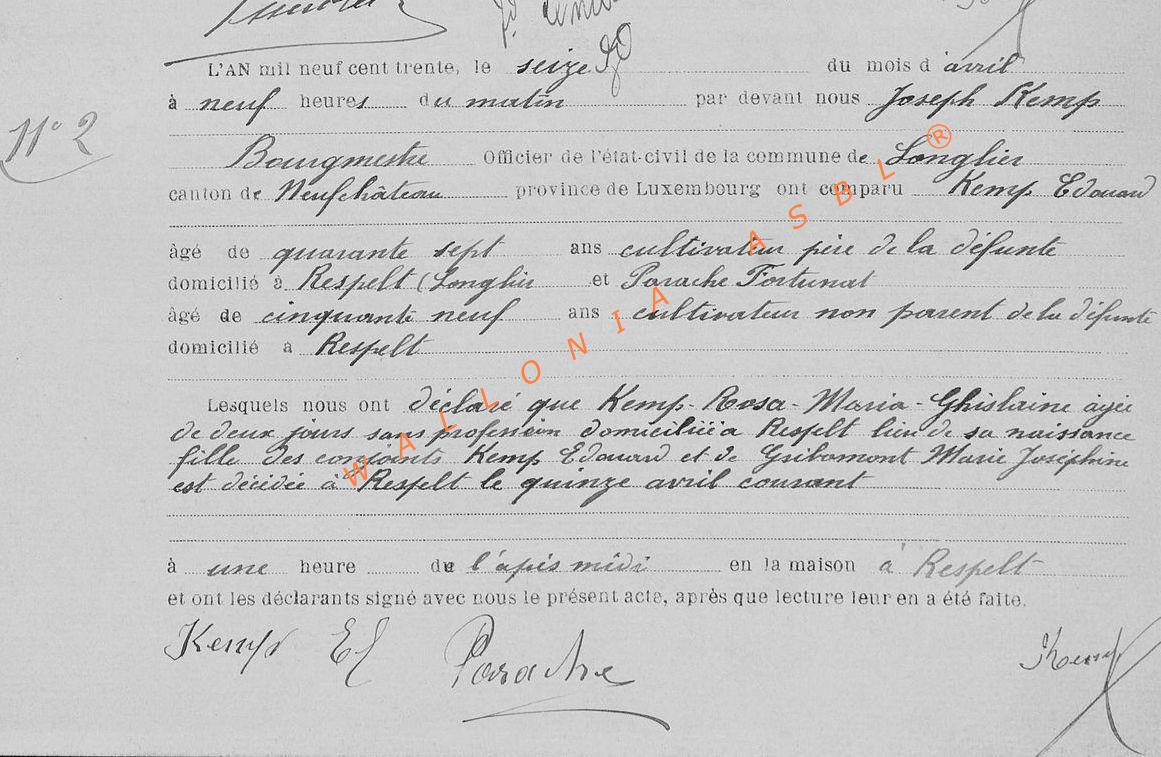 L'AN mil neuf cent trente, le seize du mois d avril
N° 2
à neuf heures du matin par devant nous Joseph Kemp
Bourgmestre Officier de l'état-civil de la commune de Longlier
canton de Neufchâteau province de Luxembourg ont comparu Kemp Edouard
âgé de quarante sept ans cultivateur père de la défunte
domicilié à Respelt (Longlier et Parache Fortunat
âgé de cinquante neuf ans cultivateur non parent de la défunte
domicilié a Respelt
Lesquels nous ont déclaré que Kemp - Rosa - Maria - Ghislaine agée
de deux jours sans profession domiciliée a Respelt lieu de sa naissance
fille des conjoints Kemp Edouard et de Gribomont Marie Joséphine
est décédée à Respelt le quinze avril courant
à une heure de l'apès midi en la maison à Respelt
et ont les déclarants signé avec nous le présent acte, après que lecture leur en a été faite.
Kemp Ed Parache Kemp
WALLONIA ASBL ®